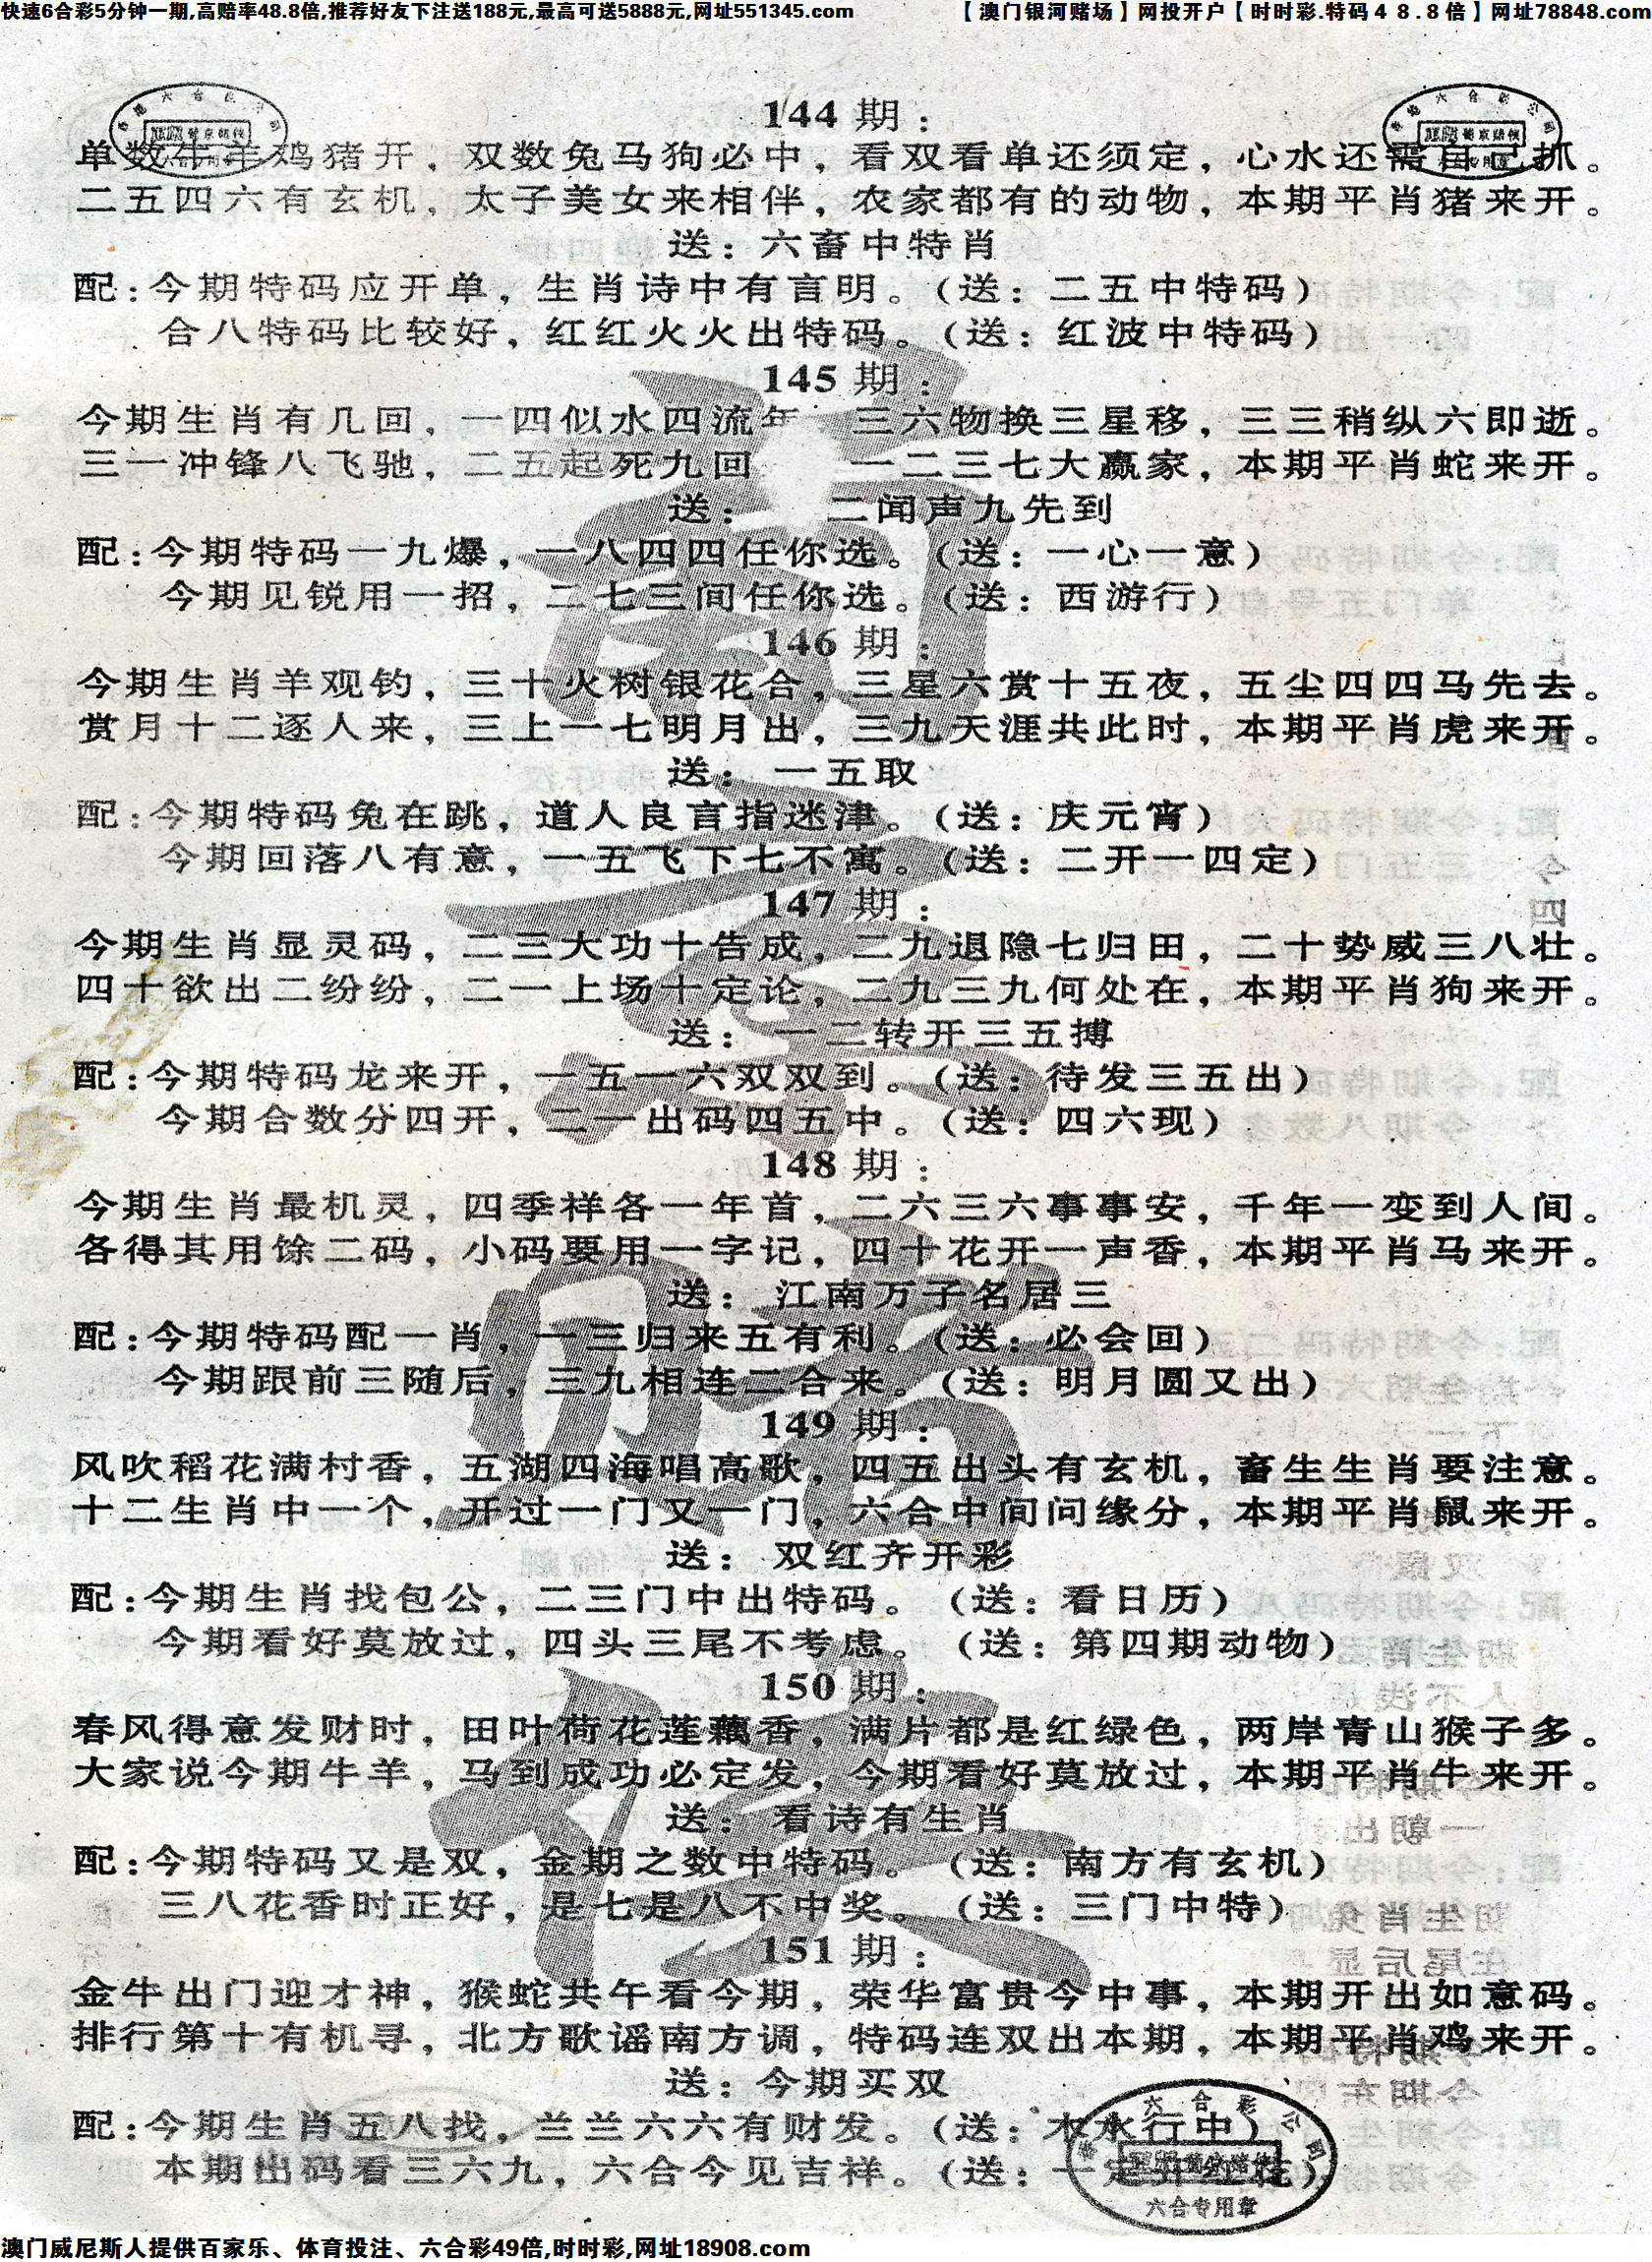 快速6合彩5分钟一期,高赔率48.8倍,推荐好友下注送188元,最高可送5888元,网址551345.com
【澳门银河赌场】网投开户【时时彩.特码４８.８倍】网址78848.com
144 期：
单数牛羊鸡猪开，双数兔马狗必中，看双看单还须定，心水还需自己抓。
二五四六有玄机，太子美女来相伴，农家都有的动物，本期平肖猪来开。
送：六畜中特肖
配：今期特码应开单，生肖诗中有言明。（送：二五中特码）
合八特码比较好，红红火火出特码。（送：红波中特码）
145 期：
今期生肖有几回，一四似水四流年 三六物换三星移，三三稍纵六即逝。
三一冲锋八飞驰，二五起死九回 一二三七大赢家，本期平肖蛇来开。
送： 二闻声九先到
配：今期特码一九爆，一八四四任你选。（送：一心一意）
今期见锐用一招，二七三间任你选。（送：西游行）
146 期：
今期生肖羊观钓，三十火树银花合，三星六赏十五夜，五尘四四马先去。
赏月十二逐人来，三上一七明月出，三九天涯共此时，本期平肖虎来开。
送：一五取
配：今期特码兔在跳，道人良言指迷津。（送：庆元宵）
今期回落八有意，一五飞下七不寓。（送：二开一四定）
147 期：
今期生肖显灵码，二三大功十告成，二九退隐七归田，二十势威三八壮。
四十欲出二纷纷，二一上场十定论，二九三九何处在，本期平肖狗来开。
送：一二转开三五搏
配：今期特码龙来开，一五一六双双到。（送：待发三五出）
今期合数分四开，二一出码四五中。（送：四六现）
148 期：
今期生肖最机灵，四季祥各一年首，二六三六事事安，千年一变到人间。
各得其用馀二码，小码要用一字记，四十花开一声香，本期平肖马来开。
送：江南万子名居三
配：今期特码配一肖，一三归来五有利。（送：必会回）
今期跟前三随后，三九相连二合来。（送：明月圆又出）
149 期：
风吹稻花满村香，五湖四海唱高歌，四五出头有玄机，畜生生肖要注意。
十二生肖中一个，开过一门又一门，六合中间问缘分，本期平肖鼠来开。
送：双红齐开彩
配：今期生肖找包公，二三门中出特码。（送：看日历）
今期看好莫放过，四头三尾不考虑。（送：第四期动物）
150 期：
春风得意发财时，田叶荷花莲藕香，满片都是红绿色，两岸青山猴子多。
大家说今期牛羊，马到成功必定发，今期看好莫放过，本期平肖牛来开。
送：看诗有生肖
配：今期特码又是双，金期之数中特码。（送：南方有玄机）
三八花香时正好，是七是八不中奖。（送：三门中特）
151 期：
金牛出门迎才神，猴蛇共午看今期，荣华富贵今中事，本期开出如意码。
排行第十有机寻，北方歌谣南方调，特码连双出本期，本期平肖鸡来开。
送：今期买双
配：今期生肖五八找，兰兰六六有财发。（送：木水行中）
本期出码看三六九，六合今见吉祥。（送：一定开红花）
六合专用章
澳门威尼斯人提供百家乐、体育投注、六合彩49倍,时时彩,网址18908.com